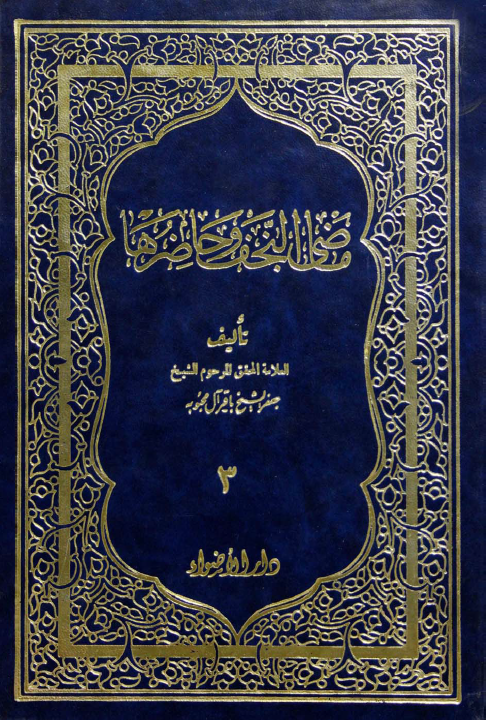 ماضي النجف وحاضرها
تأليف
العلامة المحقق المرحوم الشيخ
جعفر الشيخ باقر آل محبوبه
٣
دار الأضواء